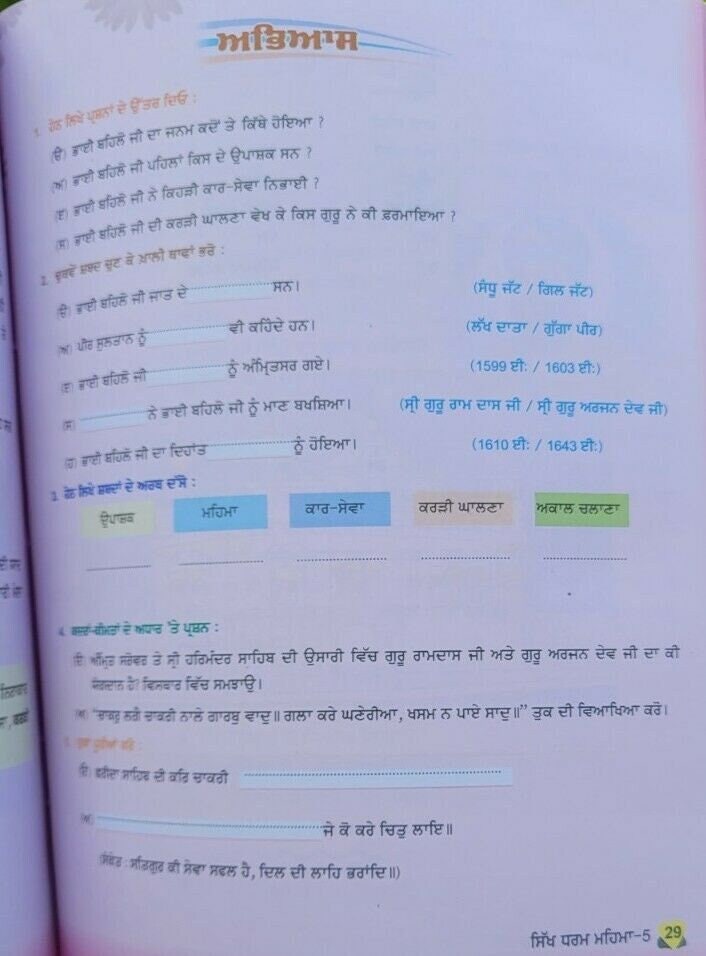 ਅਭਿਆਸ
1. ਹੇਠ ਲਿਖੇ ਪ੍ਰਸ਼ਨਾਂ ਦੇ ਉੱਤਰ ਦਿਓ :
(ੳ) ਭਾਈ ਬਹਿਲੋ ਜੀ ਦਾ ਜਨਮ ਕਦੋਂ ਤੇ ਕਿੱਥੇ ਹੋਇਆ ?
(ਅ) ਭਾਈ ਬਹਿਲੋ ਜੀ ਪਹਿਲਾਂ ਕਿਸ ਦੇ ਉਪਾਸ਼ਕ ਸਨ ?
(ੲ) ਭਾਈ ਬਹਿਲੋ ਜੀ ਨੇ ਕਿਹੜੀ ਕਾਰ-ਸੇਵਾ ਨਿਭਾਈ ?
(ਸ) ਭਾਈ ਬਹਿਲੋ ਜੀ ਦੀ ਕਰੜੀ ਘਾਲਣਾ ਵੇਖ ਕੇ ਕਿਸ ਗੁਰੂ ਨੇ ਕੀ ਫ਼ਰਮਾਇਆ ?
2. ਢੁਕਵੇਂ ਸ਼ਬਦ ਚੁਣ ਕੇ ਖ਼ਾਲੀ ਥਾਵਾਂ ਭਰੋ :
(ੳ) ਭਾਈ ਬਹਿਲੋ ਜੀ ਜਾਤ ਦੇ ਸਨ। (ਸੰਧੂ ਜੱਟ / ਗਿਲ ਜੱਟ)
(ਅ) ਪੀਰ ਸੁਲਤਾਨ ਨੂੰ ਵੀ ਕਹਿੰਦੇ ਹਨ। (ਲੱਖ ਦਾਤਾ / ਗੁੱਗਾ ਪੀਰ)
(ੲ) ਭਾਈ ਬਹਿਲੋ ਜੀ ਨੂੰ ਅੰਮ੍ਰਿਤਸਰ ਗਏ। (1599 ਈ: / 1603 ਈ:)
(ਸ) ਨੇ ਭਾਈ ਬਹਿਲੋ ਜੀ ਨੂੰ ਮਾਣ ਬਖਸ਼ਿਆ। (ਸ੍ਰੀ ਗੁਰੂ ਰਾਮ ਦਾਸ ਜੀ / ਸ੍ਰੀ ਗੁਰੂ ਅਰਜਨ ਦੇਵ ਜੀ)
(ਹ) ਭਾਈ ਬਹਿਲੋ ਜੀ ਦਾ ਦਿਹਾਂਤ ਨੂੰ ਹੋਇਆ। (1610 ਈ: / 1643 ਈ:)
3. ਹੇਠ ਲਿਖੇ ਸ਼ਬਦਾਂ ਦੇ ਅਰਥ ਦੱਸੋ :
ਉਪਾਸ਼ਕ ਮਹਿਮਾ ਕਾਰ-ਸੇਵਾ ਕਰੜੀ ਘਾਲਣਾ ਅਕਾਲ ਚਲਾਣਾ
4. ਕਦਰਾਂ-ਕੀਮਤਾਂ ਦੇ ਅਧਾਰ 'ਤੇ ਪ੍ਰਸ਼ਨ :
(ੳ) ਅੰਮ੍ਰਿਤ ਸਰੋਵਰ ਤੇ ਸ੍ਰੀ ਹਰਿਮੰਦਰ ਸਾਹਿਬ ਦੀ ਉਸਾਰੀ ਵਿੱਚ ਗੁਰੂ ਰਾਮਦਾਸ ਜੀ ਅਤੇ ਗੁਰੂ ਅਰਜਨ ਦੇਵ ਜੀ ਦਾ ਕੀ
ਯੋਗਦਾਨ ਹੈ? ਵਿਸਥਾਰ ਵਿੱਚ ਸਮਝਾਉ।
(ਅ) "ਚਾਕਰੁ ਲਗੈ ਚਾਕਰੀ ਨਾਲੇ ਗਾਰਬੁ ਵਾਦੁ॥ ਗਲਾ ਕਰੇ ਘਣੇਰੀਆ, ਖਸਮ ਨ ਪਾਏ ਸਾਦੁ॥" ਤੁਕ ਦੀ ਵਿਆਖਿਆ ਕਰੋ।
5. ਤੁਕਾਂ ਪੂਰੀਆਂ ਕਰੋ :
(ੳ) ਫਰੀਦਾ ਸਾਹਿਬ ਦੀ ਕਰਿ ਚਾਕਰੀ
(ਅ) ਜੇ ਕੋ ਕਰੇ ਚਿਤੁ ਲਾਇ॥
(ਸੰਕੇਤ : ਸਤਿਗੁਰ ਕੀ ਸੇਵਾ ਸਫਲ ਹੈ, ਦਿਲ ਦੀ ਲਾਹਿ ਭਰਾਂਦਿ॥)
ਸਿੱਖ ਧਰਮ ਮਹਿਮਾ-5 29